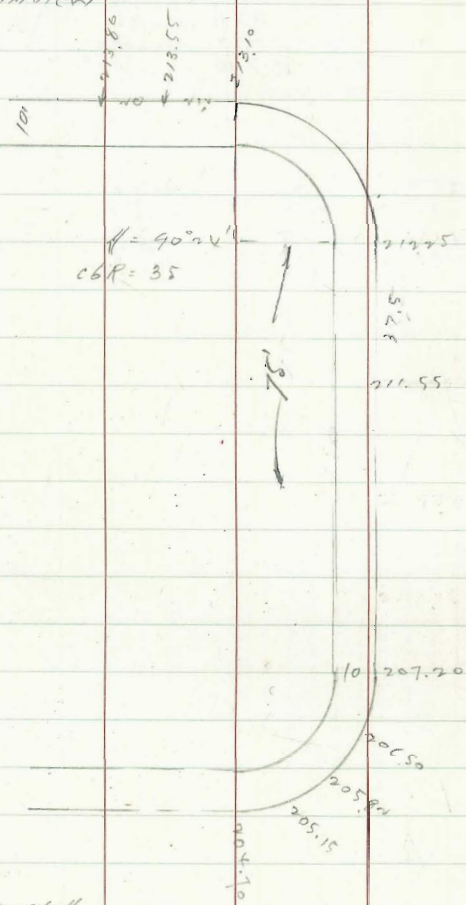 213.80
213.55
213.10
20
10'
= 90°24'
CGR = 35
212.25
37.5
75'
211.55
10
207.20
206.50
205.82
205.15
204.70